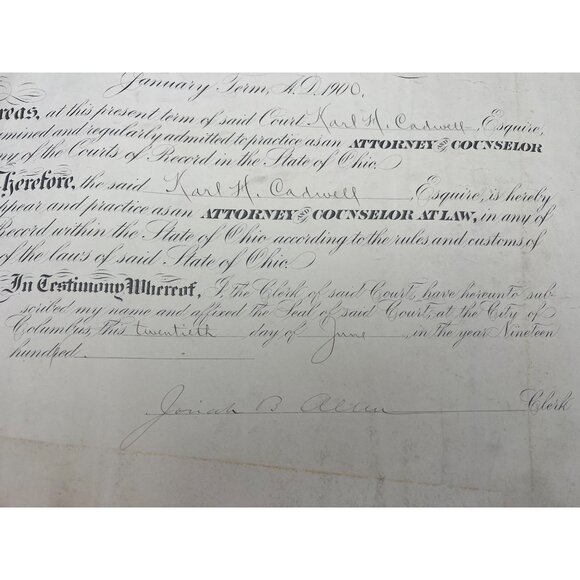 January Term, A.D. 1900.
reas, at this present term of said Court Karl H. Cadwell, Esquire,
mined and regularly admitted to practice as an ATTORNEY AND COUNSELOR
ny of the Courts of Record in the State of Ohio.
Therefore, the said Karl H. Cadwell, Esquire, is hereby
ppear and practice as an ATTORNEY AND COUNSELOR AT LAW, in any of
Record within the State of Ohio according to the rules and customs of
of the laws of said State of Ohio.
In Testimony Whereof, I, the Clerk of said Court, have hereunto sub-
scribed my name and affixed the Seal of said Court, at the City of
Columbus, this twentieth day of June, in the year Nineteen
hundred.
Josiah B. Allen Clerk